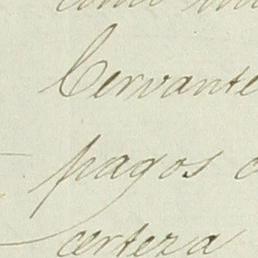 como
Cervante
pagos
certeza